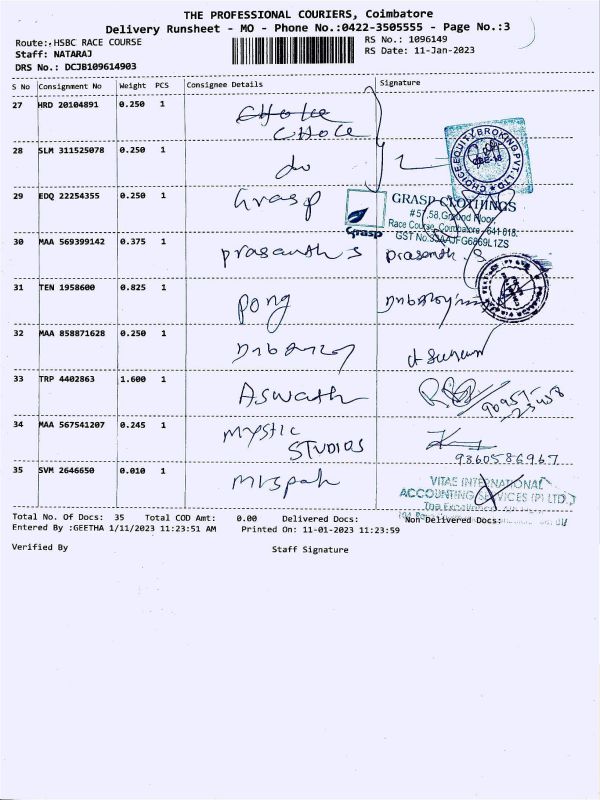 THE PROFESSIONAL COURIERS, Coimbatore
Delivery Runsheet - MO - Phone No.:0422-3505555 - Page No.:3
Route:.HSBC RACE COURSE
RS No.: 1096149
Staff: NATARAJ
RS Date: 11-Jan-2023
DRS No.: DCJB109614903
S No Consignment No Weight PCS Consignee Details Signature
27 HRD 20104891 0.250 1
CHOICE
28 SLM 311525078 0.250 1 do
CHOICE EQUITY BROKING PVT. LTD
29 EDQ 22254355 0.250 1 Grasp
Grasp
GRASP CLOTHINGS
#57,58,Ground Floor,
Race Course, Coimbatore - 641 018.
GST No.33AAJFG6869L1ZS
30 MAA 569399142 0.375 1 prasanth S prasanth. S
31 TEN 1958600 0.825 1 pong
32 MAA 858871628 0.250 1
33 TRP 4402863 1.600 1 Aswath
34 MAA 567541207 0.245 1 Mystic
STUDIOS
9860586967
35 SVM 2646650 0.010 1
VITAE INTERNATIONAL
ACCOUNTING SERVICES (P) LTD.,
Total No. Of Docs: 35 Total COD Amt: 0.00 Delivered Docs: Non Delivered Docs:
Entered By :GEETHA 1/11/2023 11:23:51 AM Printed On: 11-01-2023 11:23:59
Verified By Staff Signature